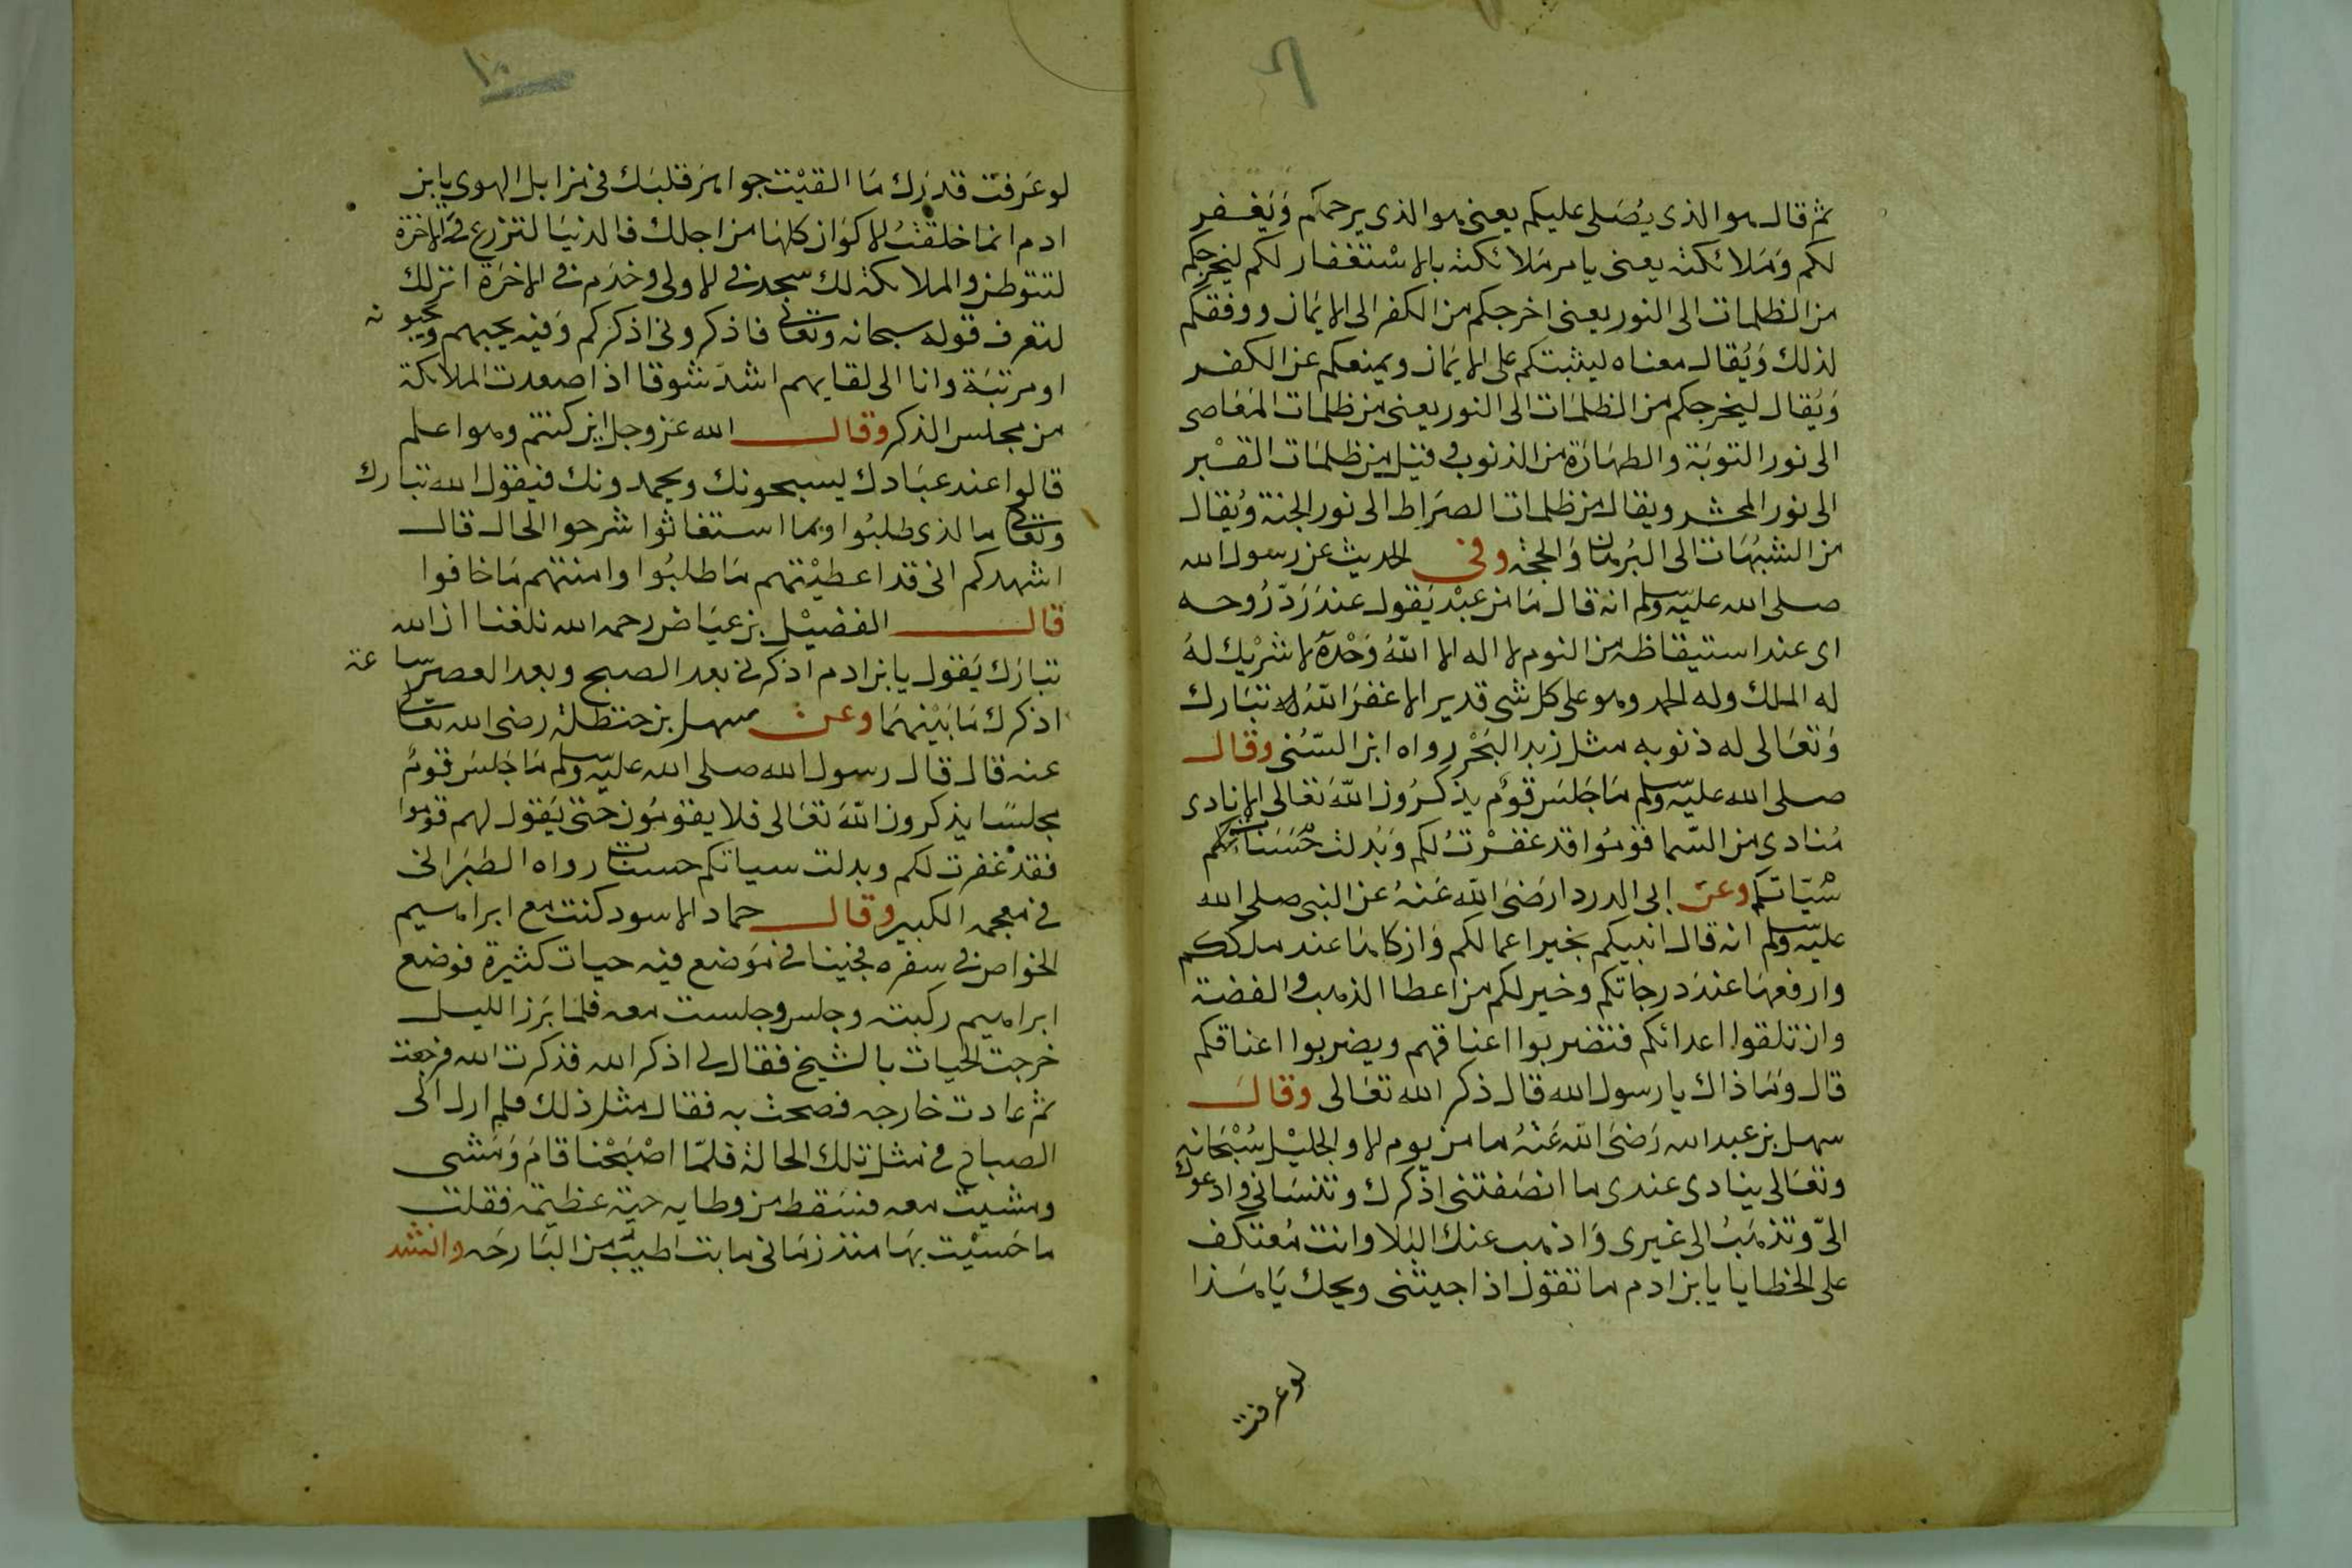 ثم قال هو الذى يُصَلى عليكم يعنى هو الذى يرحمكم وَيَغفر
لكم وَمَلائكته يعنى يامر مَلائكته بالاسْتغفار لكم ليخرجكم
من الظلمات الى النور يعنى اخرجكم من الكفر الى الايَمان ووفقكم
لذلك وَيُقال معناه ليثبتكم على الايَمان ويمنعكم عن الكفر
وَيُقال ليخرجكم من الظلمَات الى النور يعنى من ظلمات المَعَاصى
الى نور التوبَة والطهَارَة من الذنوب وقيل من ظلمَات القبْر
الى نور المحشر ويقال من ظلمات الصرَاط الى نور الجنة وُيقال
من الشبُهَات الى البُرهان وَالحجة وفى الحديث عن رسول الله
صلى الله عليه وسلم انه قال مَا من عبْد يَقول عندَ رَدّ رُوحه
اى عند استيقاظه من النوم لا اله الا اللهُ وَحْدَهُ لا شرْيك لهُ
له الملك وله الحمد وهو على كل شى قدير الا غفرَ اللهُ له تبَارك
وَتعَالى له ذنوبه مثل زبد البَحْر رواه ابن السّنى وقال
صلى الله عليه وسلم مَا جَلسَ قومٌ يذكرُون اللهَ تعَالى الا نادى
مُنادى من السّما قومُوا قد غفرْتُ لكم وَبُدلت حَسَنات
سْيّاتكم وعن ابى الدردا رَضىَ الله عَنهُ عن النبى صلى الله
عليه وسلم انه قال انبيكم بخير اعمالكم وَازكاهَا عند مليككم
وارفعهَا عندَ درجاتكم وخير لكم من اعطا الذهب والفضة
وان تلقوا اعدائكم فتضربوا اعناقهم ويضربوا اعناقكم
قال وَمَا ذاك يا رسول الله قال ذكر الله تعَالى وقال
سهل بن عبد الله رَضىَ الله عَنهُ ما من يوم الا والجليْل سُبْحَانه
وتعَالى ينادى عندى ما انصَفتنى اذكرك وتنسَانى وادعوك
الىّ وَتذهَبُ الى غيرى وَاذهب عنك البَلا وانت مُعتكف
على الخطايا يا بن ادم ما تقوَل اذا جيتنى ويحك يَا هَذا
لو عرفت
١٠
لو عَرفت قدرَك مَا القيْت جواهرَ قلبَك فى مزابل الهوى يا بن
ادم انما خلقتُ الاكوَان كلهَا من اجلك فالدنيَا لتزرع فى الاخرَة
لتتوطن والملائكة لك سجدت فى الاولى وخدَم فى الاخرَة انزلك
لتعرف قوله سبحانه وتعالى فاذكرونى اذكركم وَفيه يحبهم ويحبونه
او مرتبَة وانا الى لقايهم اشدّ شوقا اذا صعدت الملائكة
من مجلس الذكر وقال الله عز وجل اين كنتم وهو اعلم
قالوا عند عبَادك يسبحونك ويحمدونك فيقول الله تبارك
وتعالى ما الذى طلبُوا وبما استغاثوا شرحوا الحال قال
اشهدكم انى قد اعطيْتهم مَا طلبُوا وامنتهم مَا خافوا
قال الفضيْل بن عيَاض رحمه الله بلغنا ان الله
تبارَك يَقول يا بن ادم اذكرنى بعد الصبح وبعد العصر ساعة
اذكرك مَا بَيْنهمَا وعن سهل بن حنظلة رضى الله تعالى
عنه قال قال رسول الله صلى الله عليه وسلم مَا جَلسَ قومٌ
مجلسًا يذكرون اللهَ تعَالى فلا يقومُون حتى يَقول لهم قوموا
فقدْ غفرت لكم وبدلت سياتكم حسنات رواه الطبَرانى
فى معجمه الكبير وقال حماد الاسود كنت مع ابراهيم
الخواص فى سفره فجينا فى مَوضع فيه حيات كثيرة فوضع
ابراهيم ركبته وجلس وجلست معه فلمَا بَرَز الليل
خرجت الحيات بالشيخ فقال لى اذكر الله فذكرت الله فرجعت
ثم عادت خارجه فصحت به فقال مثل ذلك فلم ازل الى
الصباح فى مثل تلك الحالة فلمّا اصْبَحْنا قامَ وَمَشى
ومشيت معه فسَقط من وطايه حيّة عظيمة فقلت
ما حَسيْت بهَا منذ زمَانى ما بت اطيَب من البَارحَه وانشد